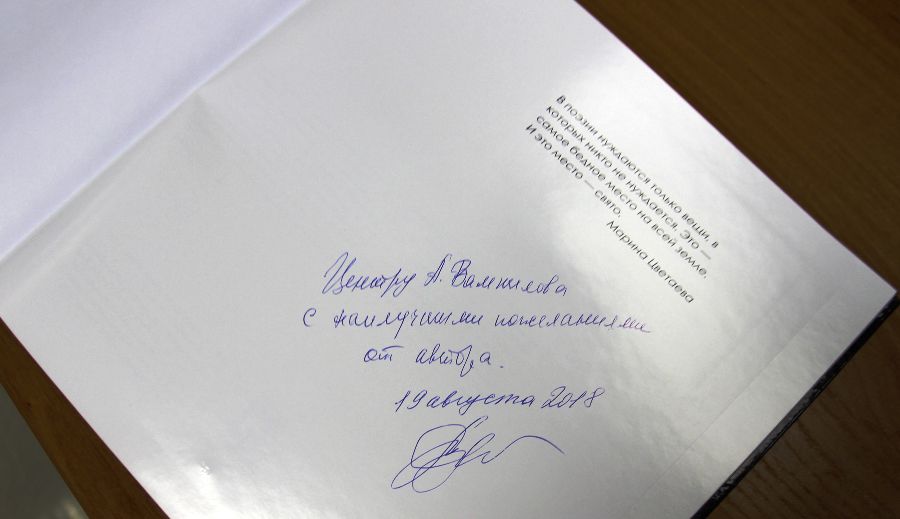 В поэзии нуждаются только вещи, в
которых никто не нуждается. Это —
самое бедное место на всей земле.
И это место — свято.
Марина Цветаева
Центру А. Вампилова
с наилучшими пожеланиями
от автора.
19 августа 2018